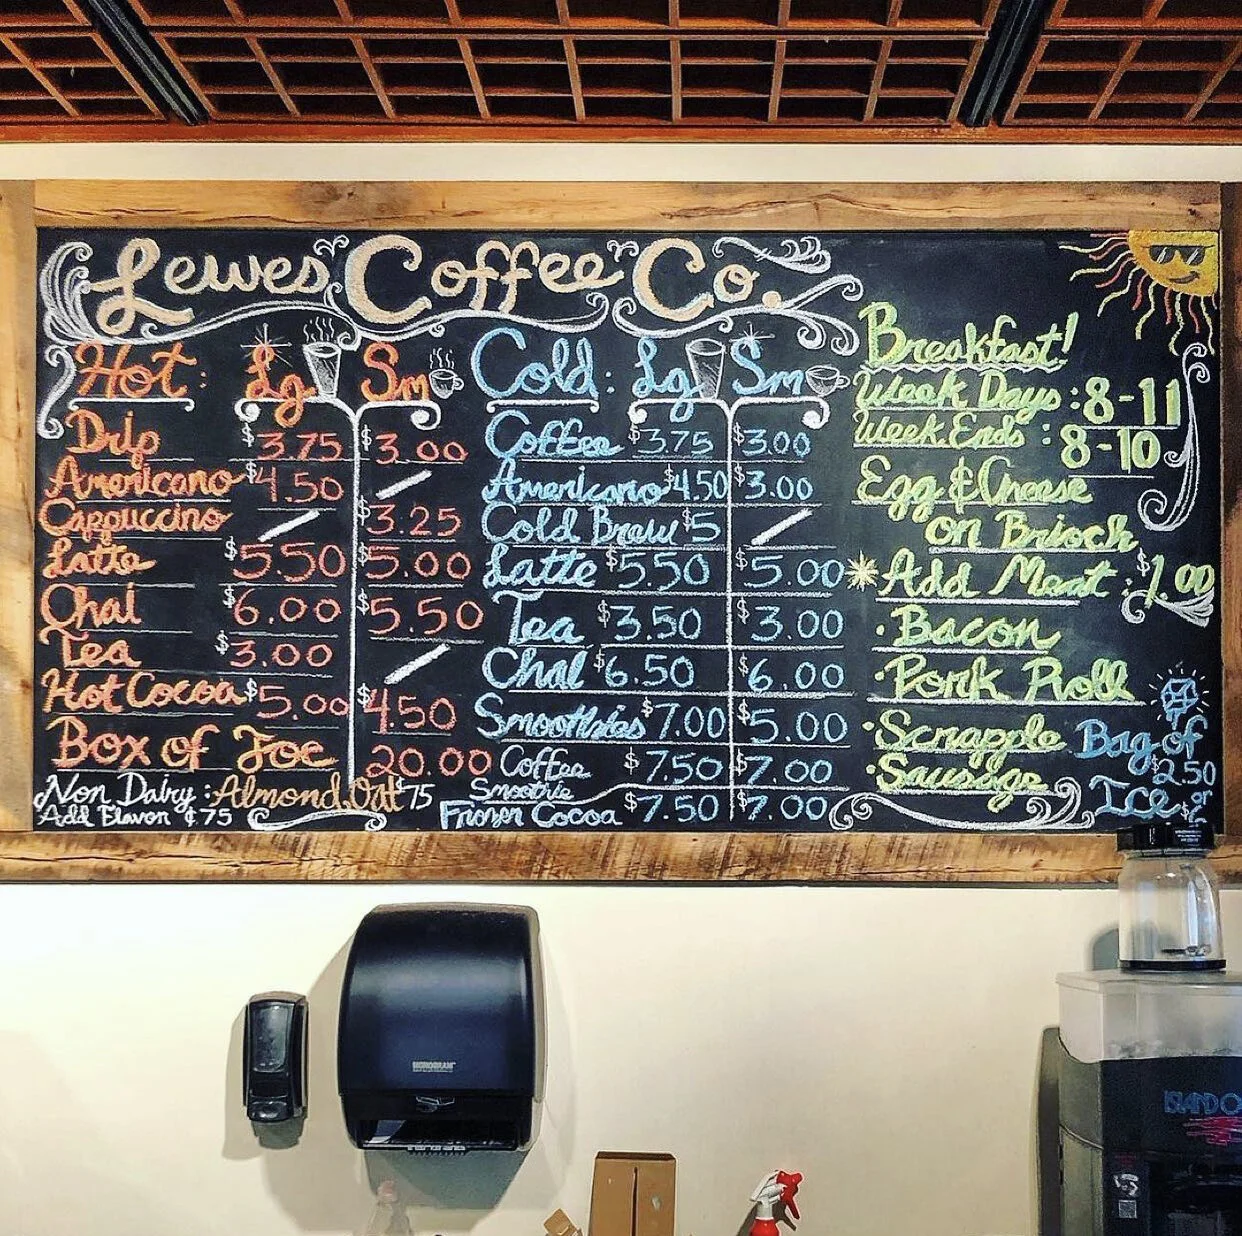 Lewes Coffee Co.
Hot: Lg Sm
Drip $3.75 $3.00
Americano $4.50
Cappuccino $3.25
Latte $5.50 $5.00
Chai $6.00 $5.50
Tea $3.00
Hot Cocoa $5.00 $4.50
Box of Joe 20.00
Non Dairy: Almond, Oat $75
Add Flavor ¢75
Cold: Lg Sm
Coffee $3.75 $3.00
Americano $4.50 $3.00
Cold Brew $5
Latte $5.50 $5.00
Tea $3.50 $3.00
Chai $6.50 $6.00
Smoothies $7.00 $5.00
Coffee Smoothie $7.50 $7.00
Frozen Cocoa $7.50 $7.00
Breakfast!
Week Days: 8-11
Week Ends: 8-10
Egg & Cheese
on Brioch
Add Meat: $1.00
• Bacon
• Pork Roll
• Scrapple
• Sausage
Bag of
Ice $2.50
or
MONOGRAM
ISLAND O